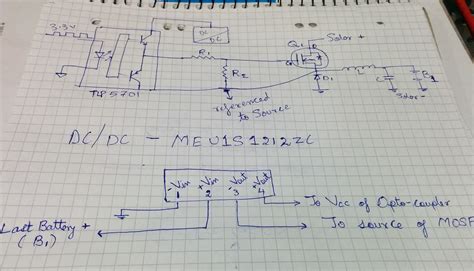 3.3V
DC/DC
Q1
D
Solar +
R1
G
TLP5701
R2
D1
L
C
B1
referenced
to Source
Solar -
DC/DC - MEU1S1212ZC
-Vin +Vin -Vout +Vout
1 2 3 4
To Vcc of Opto-coupler
Last Battery +
(B1)
To source of MOSF